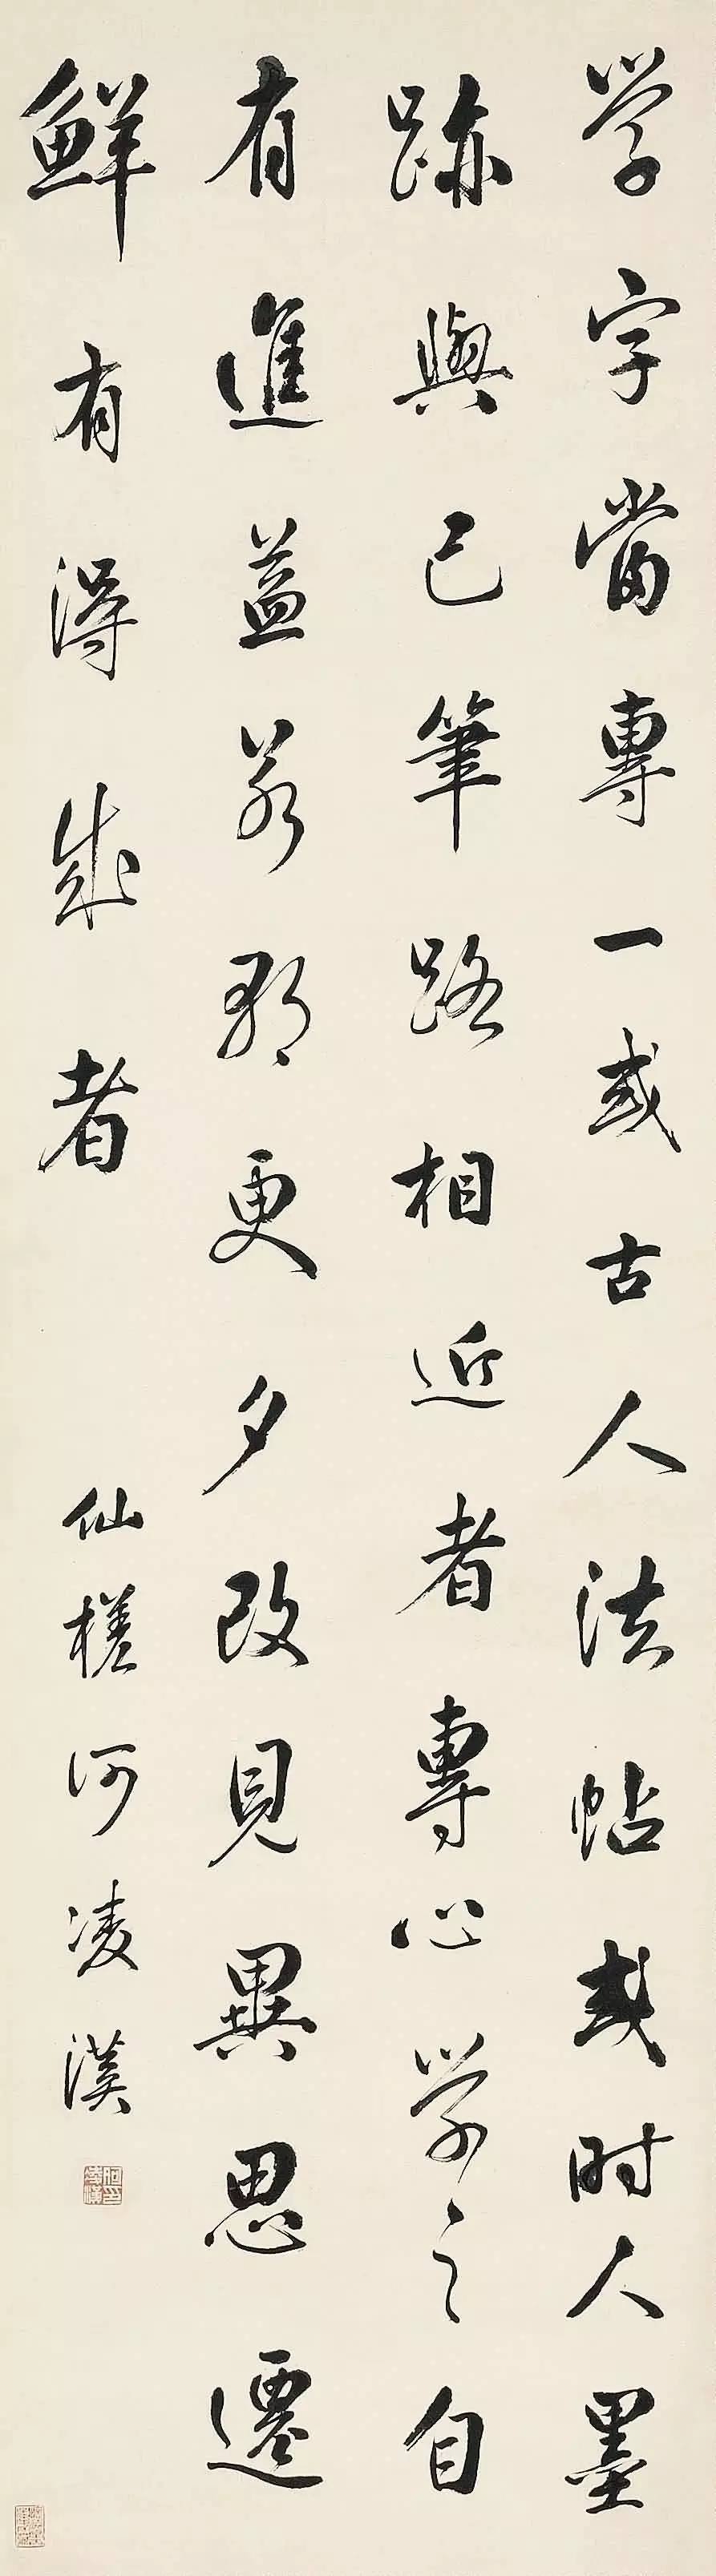 学字當專一或古人法帖或时人墨
跡與己筆路相近者專心学之自
有進益若朝更夕改見異思遷
鮮有得成者
仙槎何凌漢